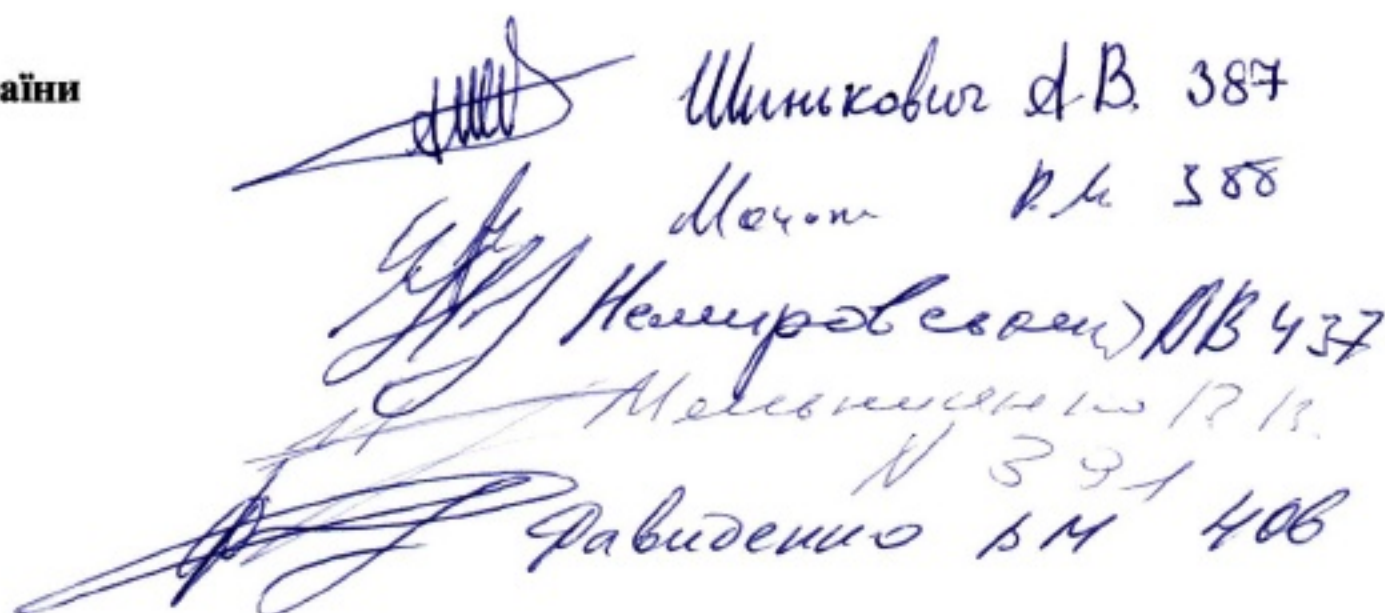 аїни
Шинькович А.В. 387
Р.М. 388
Немировський ДВ 437
Мельниченко В.В.
N 391
Давиденко ДМ 406